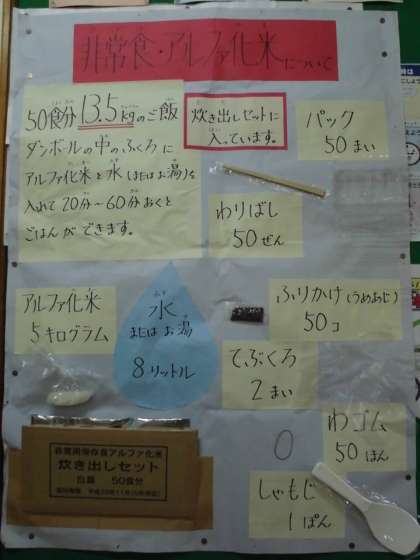 非常食・アルファ化米について
50食分13.5kgのご飯
ダンボールの中のふくろに
アルファ化米と水(またはお湯)を
入れて20分〜60分おくと
ごはんができます。
炊き出しセットに
入っています。
パック
50まい
わりばし
50ぜん
アルファ化米
5キログラム
水
またはお湯
8リットル
ふりかけ(うめあじ)
50コ
てぶくろ
2まい
わゴム
50ぽん
しゃもじ
1ぽん
非常用保存食アルファ化米
炊き出しセット
白飯 50食分